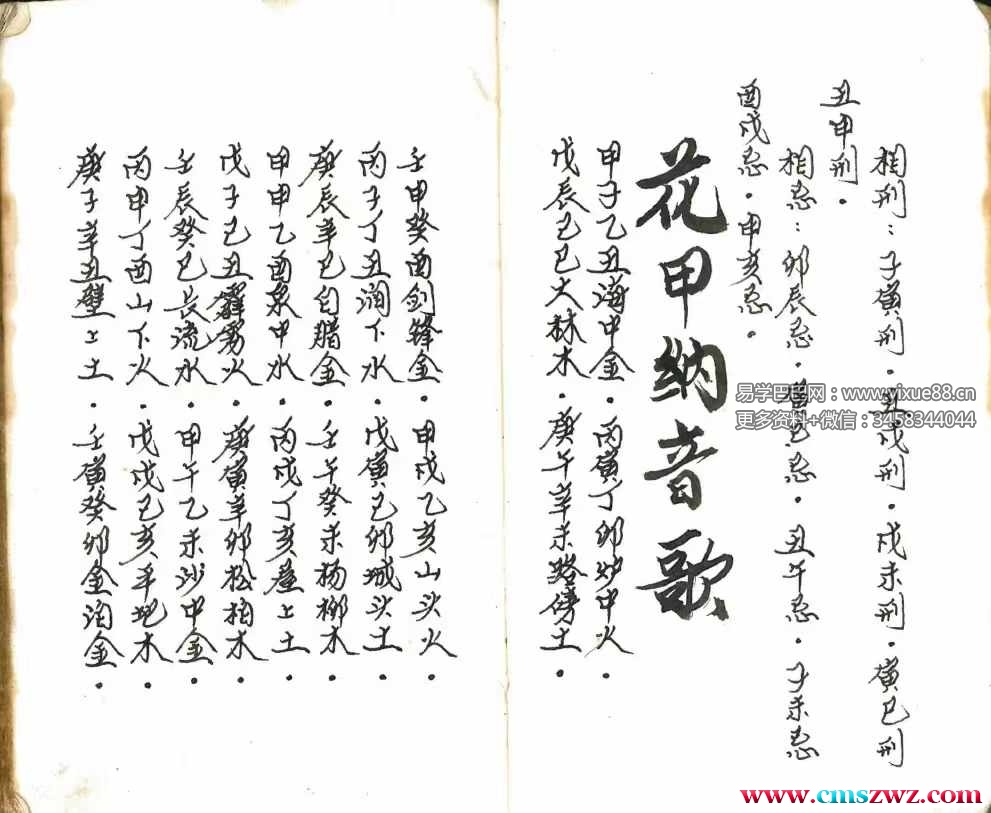 相刑：子寅刑．丑戌刑．戌未刑．寅巳刑
丑申刑．
相忌：卯辰忌．巳忌．丑午忌．子未忌
酉戌忌．申亥忌．
花甲納音歌
甲子乙丑海中金．丙寅丁卯炉中火．
戊辰己巳大林木．庚午辛未路傍土．
壬申癸酉剑锋金．甲戌乙亥山头火．
丙子丁丑涧下水．戊寅己卯城头土．
庚辰辛巳白腊金．壬午癸未杨柳木．
甲申乙酉泉中水．丙戌丁亥屋上土．
戊子己丑霹雳火．庚寅辛卯松柏木．
壬辰癸巳长流水．甲午乙未沙中金．
丙申丁酉山下火．戊戌己亥平地木．
庚子辛丑壁上土．壬寅癸卯金泊金．
易学巴巴网：www.yixue88.cn
更多资料+微信：3458344044
www.cmszwz.com